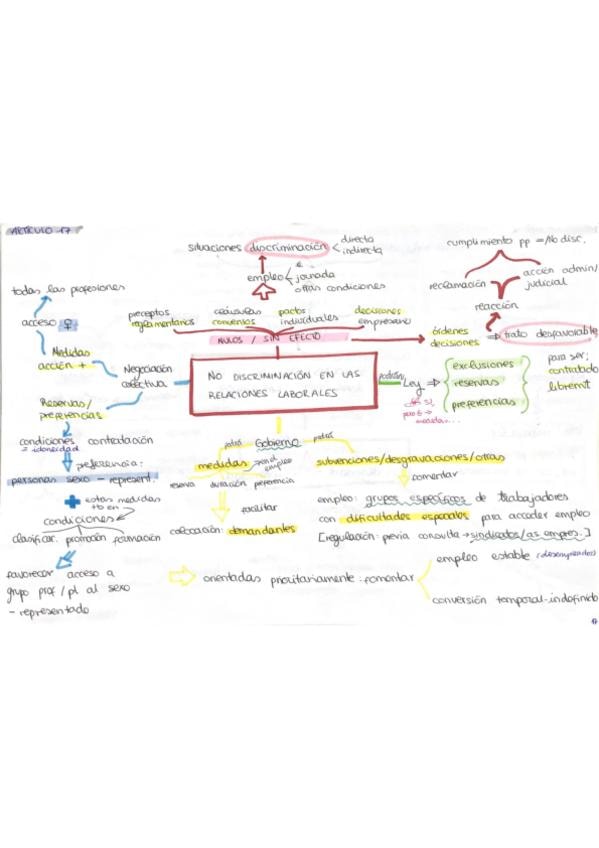 ARTÍCULO 17
situaciones discriminación < directa
indirecta
empleo < jornada
otras condiciones
cumplimiento pp = No disc.
reclamación
acción admin/
judicial
reacción
todas las profesiones
acceso ♀
Medidas
acción +
Negociación
colectiva
Reservas/
preferencias
preceptos
reglamentarios
cláusulas
convenios
pactos
individuales
decisiones
empresario
NULOS / SIN EFECTO
órdenes
decisiones
trato desfavorable
NO DISCRIMINACIÓN EN LAS
RELACIONES LABORALES
podrán
Ley ⇒
exclusiones
reservas
preferencias
para ser:
contratado
libremt
condiciones contratación
= idoneidad
preferencia:
personas sexo - represent.
+ estas medidas
tb en
condiciones
clasificar. promoción formación
favorecer acceso a
grupo prof / pt al sexo
- representado
podrá Gobierno podrá
medidas
empleo
reserva duración preferencia
facilitar
colocación: demandantes
subvenciones/desgravaciones/otras
fomentar
empleo: grupos específicos de trabajadores
con dificultades especiales para acceder empleo
[regulación: previa consulta → sindicatos/as empres.]
orientadas prioritariamente: fomentar
empleo estable (desempleados)
conversión temporal-indefinido